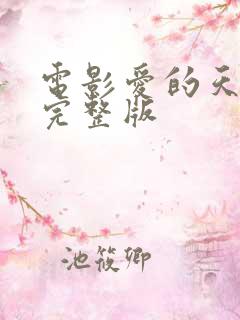 電影愛的天
完整版
池筱卿